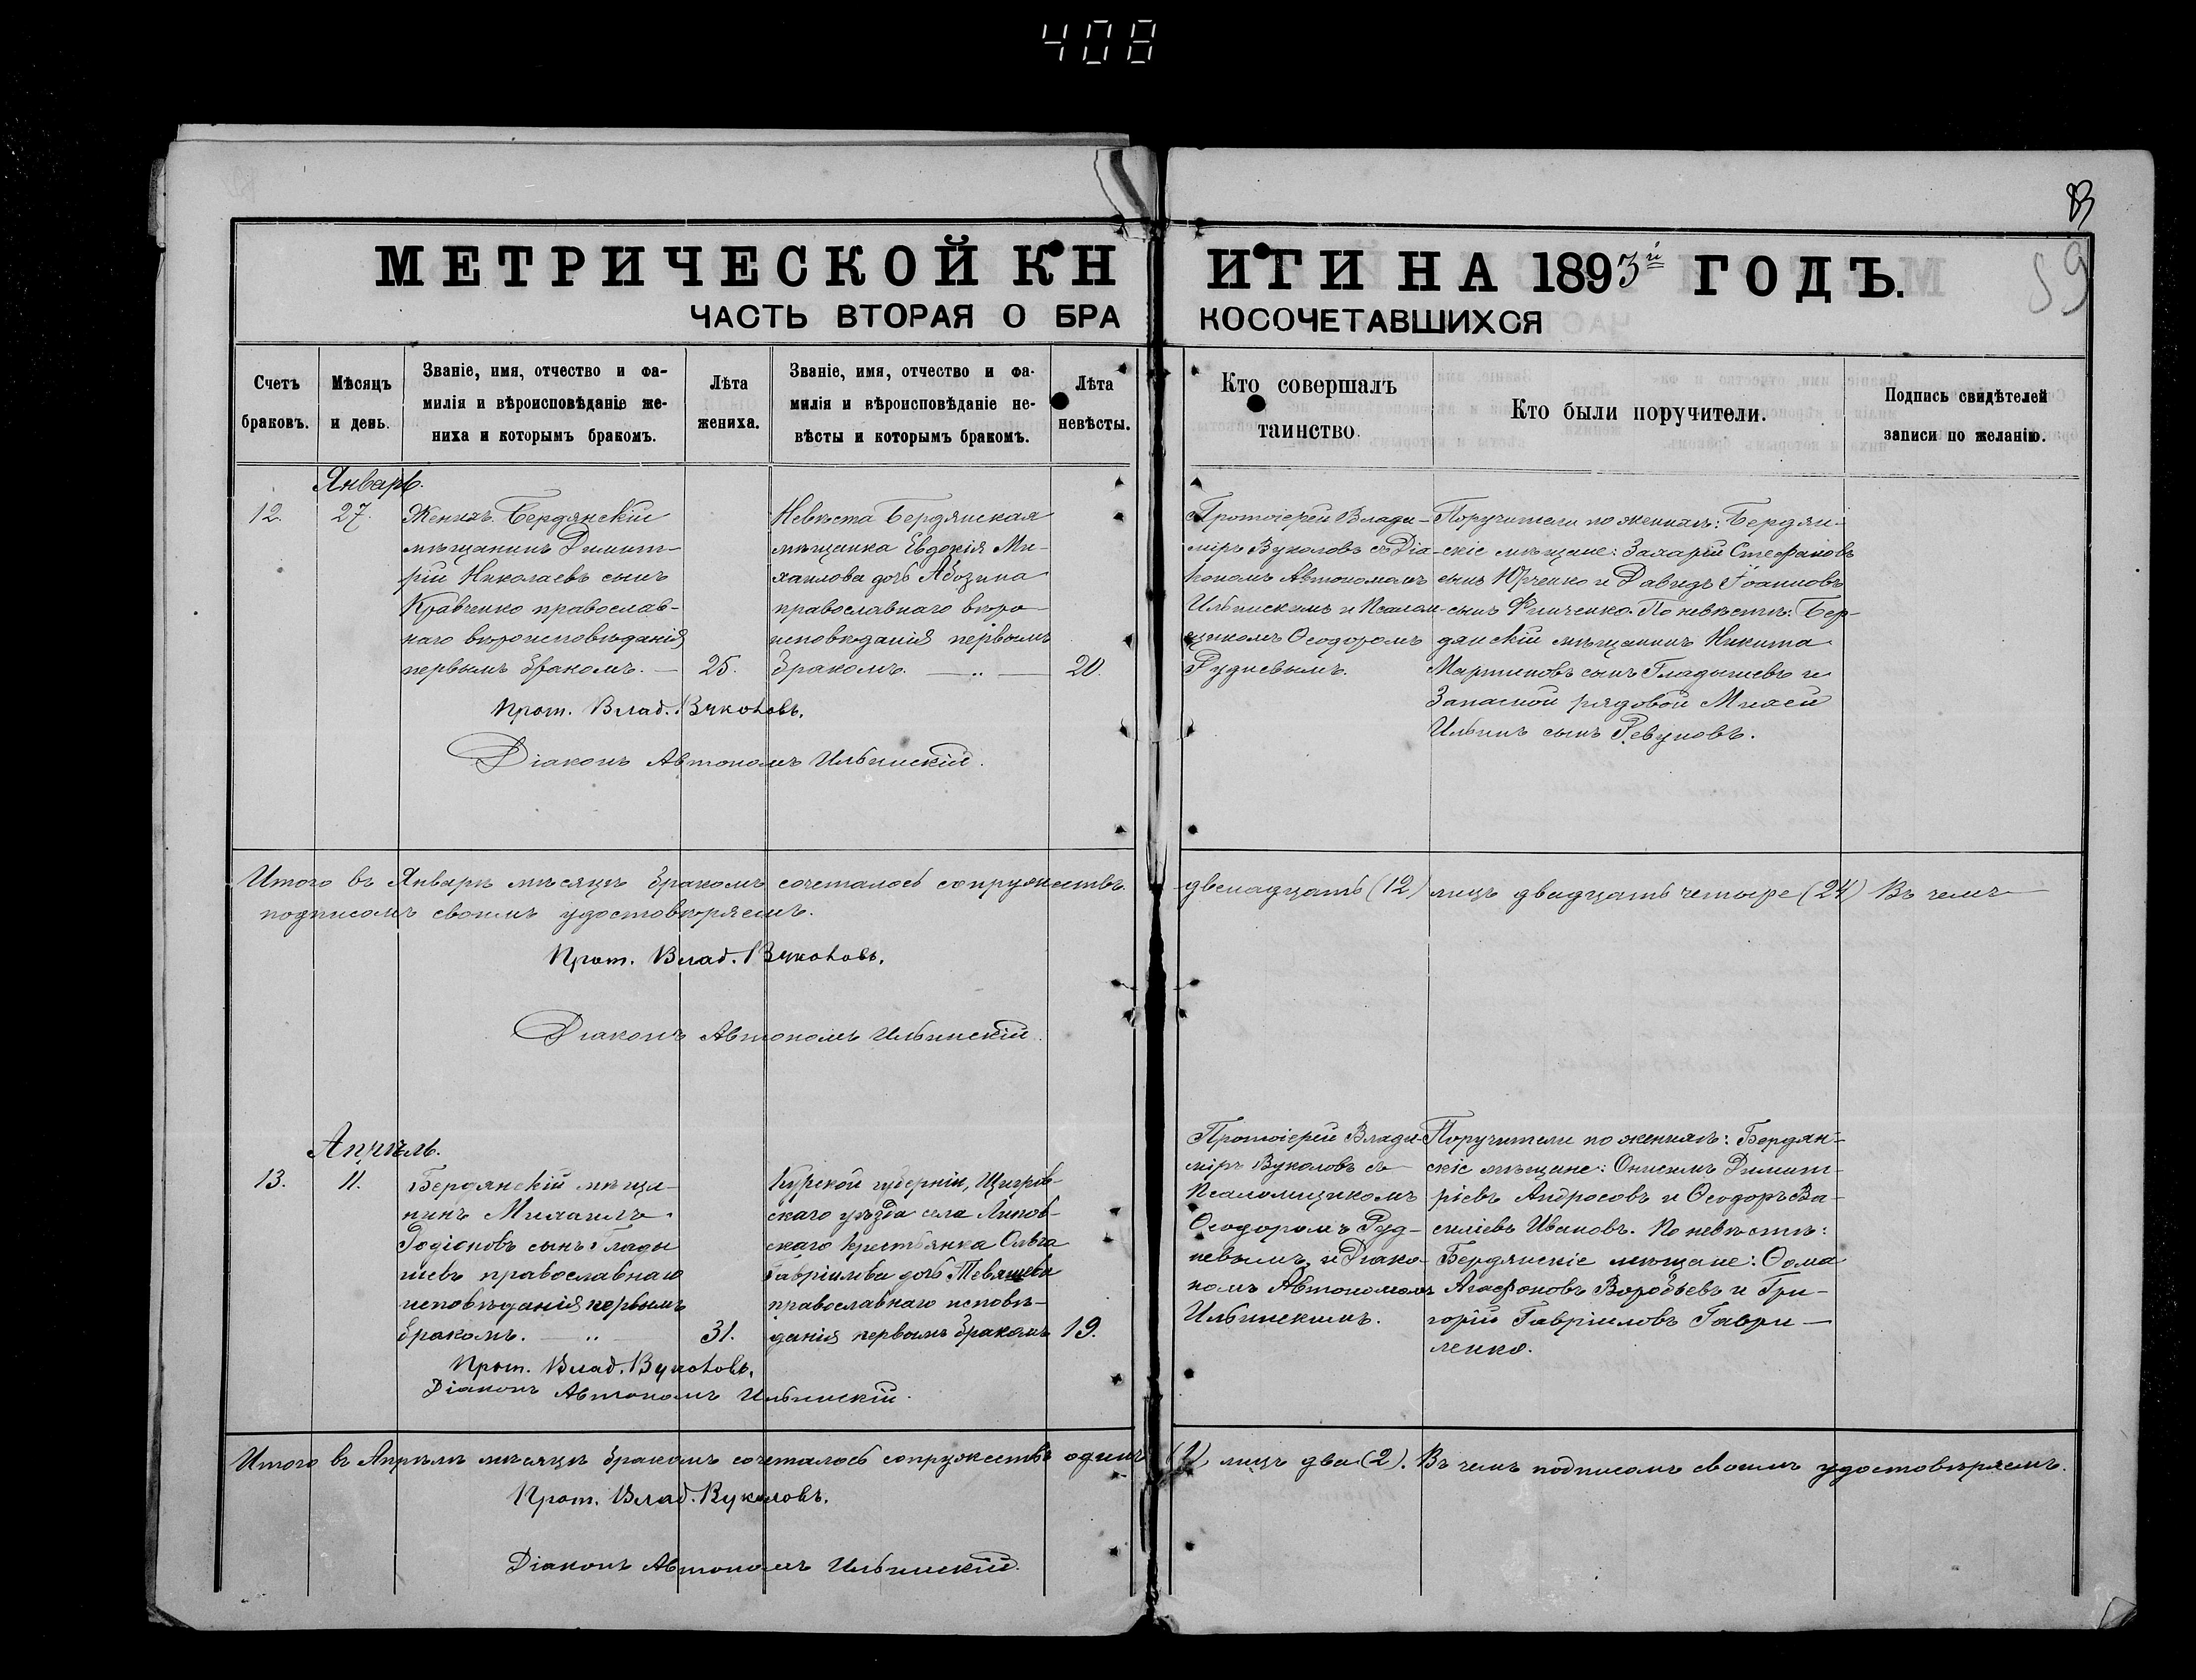 408
83
59
МЕТРИЧЕСКОЙ КНИГИ НА 1893й ГОДЪ.
ЧАСТЬ ВТОРАЯ О БРАКОСОЧЕТАВШИХСЯ
Счетъ
браковъ.
Мѣсяцъ
и день.
Званіе, имя, отчество и фа-
милія и вѣроисповѣданіе же-
ниха и которымъ бракомъ.
Лѣта
жениха.
Званіе, имя, отчество и фа-
милія и вѣроисповѣданіе не-
вѣсты и которымъ бракомъ.
Лѣта
невѣсты.
Кто совершалъ
таинство.
Кто были поручители.
Подпись свидѣтелей
записи по желанію.
Январь.
12.
27.
Женихъ Бердянскій
мѣщанинъ Димит-
рій Николаевъ сынъ
Кравченко православ-
наго вѣроисповѣданія
первымъ бракомъ. —
25.
Невѣста Бердянская
мѣщанка Евдокія Ми-
хаилова дочь Абозина
православнаго вѣро-
исповѣданія первымъ
бракомъ. — „ —
20.
Протоіерей Влади-
міръ Вуколовъ съ Діа-
кономъ Автономомъ
Ильинскимъ и Псалом-
щикомъ Ѳеодоромъ
Рудневымъ.
Поручители по женихѣ: Бердян-
скіе мѣщане: Захарій Стефановъ
сынъ Юрченко и Давидъ Іоанновъ
сынъ Финченко. По невѣстѣ: Бер-
дянскій мѣщанинъ Никита
Мартиновъ сынъ Гладышевъ и
Запасной рядовой Михей
Ильинъ сынъ Ревуновъ.
Прот. Влад. Вуколовъ.
Діаконъ Автономъ Ильинскій.
Итого въ Январѣ мѣсяцѣ бракомъ сочеталось супружествъ двенадцать (12) лицъ двадцать четыре (24) Въ чемъ
подписомъ своимъ удостовѣряемъ.
Прот. Влад. Вуколовъ.
Діаконъ Автономъ Ильинскій.
Апрѣль.
13.
11.
Бердянскій мѣща-
нинъ Михаилъ
Родіоновъ сынъ Глады
шевъ православнаго
исповѣданія первымъ
бракомъ. — „ —
31.
Курской губерніи, Щигров-
скаго уѣзда села Липов-
скаго крестьянка Ольга
Гавріилова дочь Тевяшева
православнаго исповѣ-
данія первымъ бракомъ
19.
Протоіерей Влади-
міръ Вуколовъ съ
Псаломщикомъ
Ѳеодоромъ Руд-
невымъ и Діако-
номъ Автономомъ
Ильинскимъ.
Поручители по женихѣ: Бердян-
скіе мѣщане: Онисимъ Димит-
ріевъ Андросовъ и Ѳеодоръ Ва-
силіевъ Ивановъ. По невѣстѣ:
Бердянскіе мѣщане: Ѳома
Агафоновъ Воробьевъ и Гри-
горій Гавріиловъ Гаври—
ленко.
Прот. Влад. Вуколовъ.
Діаконъ Автономъ Ильинскій.
Итого въ Апрѣлѣ мѣсяцѣ бракомъ сочеталось супружествъ одинъ (1) лицъ два (2). Въ чемъ подписомъ своимъ удостовѣряемъ.
Прот. Влад. Вуколовъ.
Діаконъ Автономъ Ильинскій.